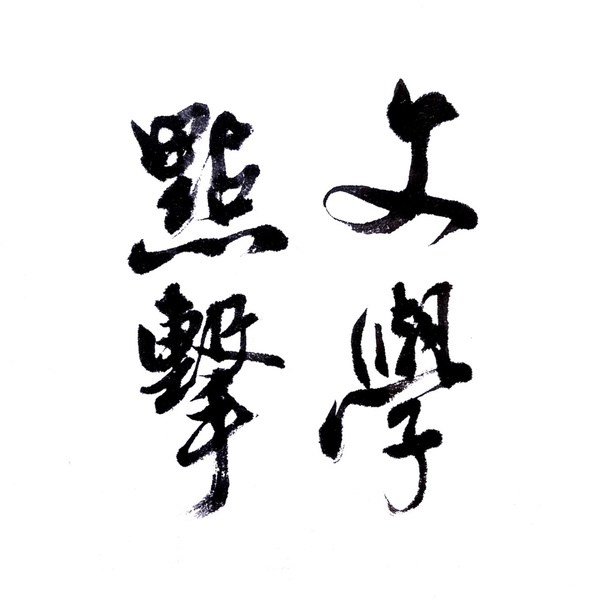 文學
點擊